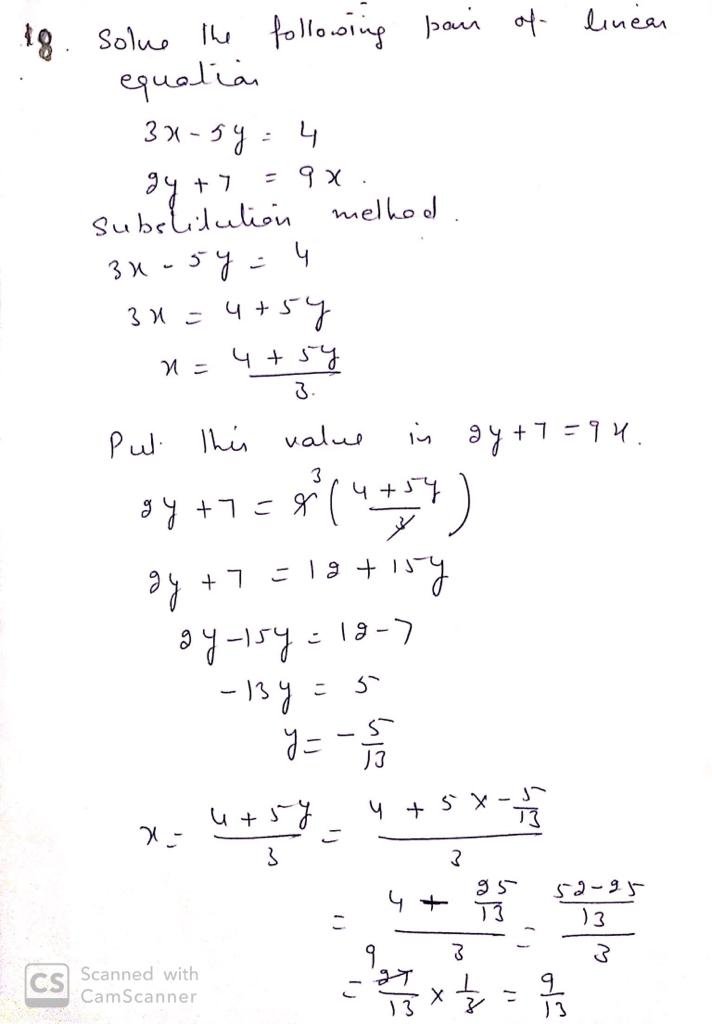 18. Solve the following pair of linear
equation
3x - 5y = 4
2y + 7 = 9x.
Substitution method.
3x - 5y = 4
3x = 4 + 5y
x = (4 + 5y)/3.
Put this value in 2y + 7 = 9x.
2y + 7 = 9 3 ((4 + 5y)/3)
2y + 7 = 12 + 15y
2y - 15y = 12 - 7
- 13y = 5
y = - 5/13
x = (4 + 5y)/3 = (4 + 5 x - 5/13)/3
= (4 + 25/13)/3 = ((52 - 25)/13)/3
= 9 27/13 x 1/3 = 9/13
CS Scanned with
CamScanner